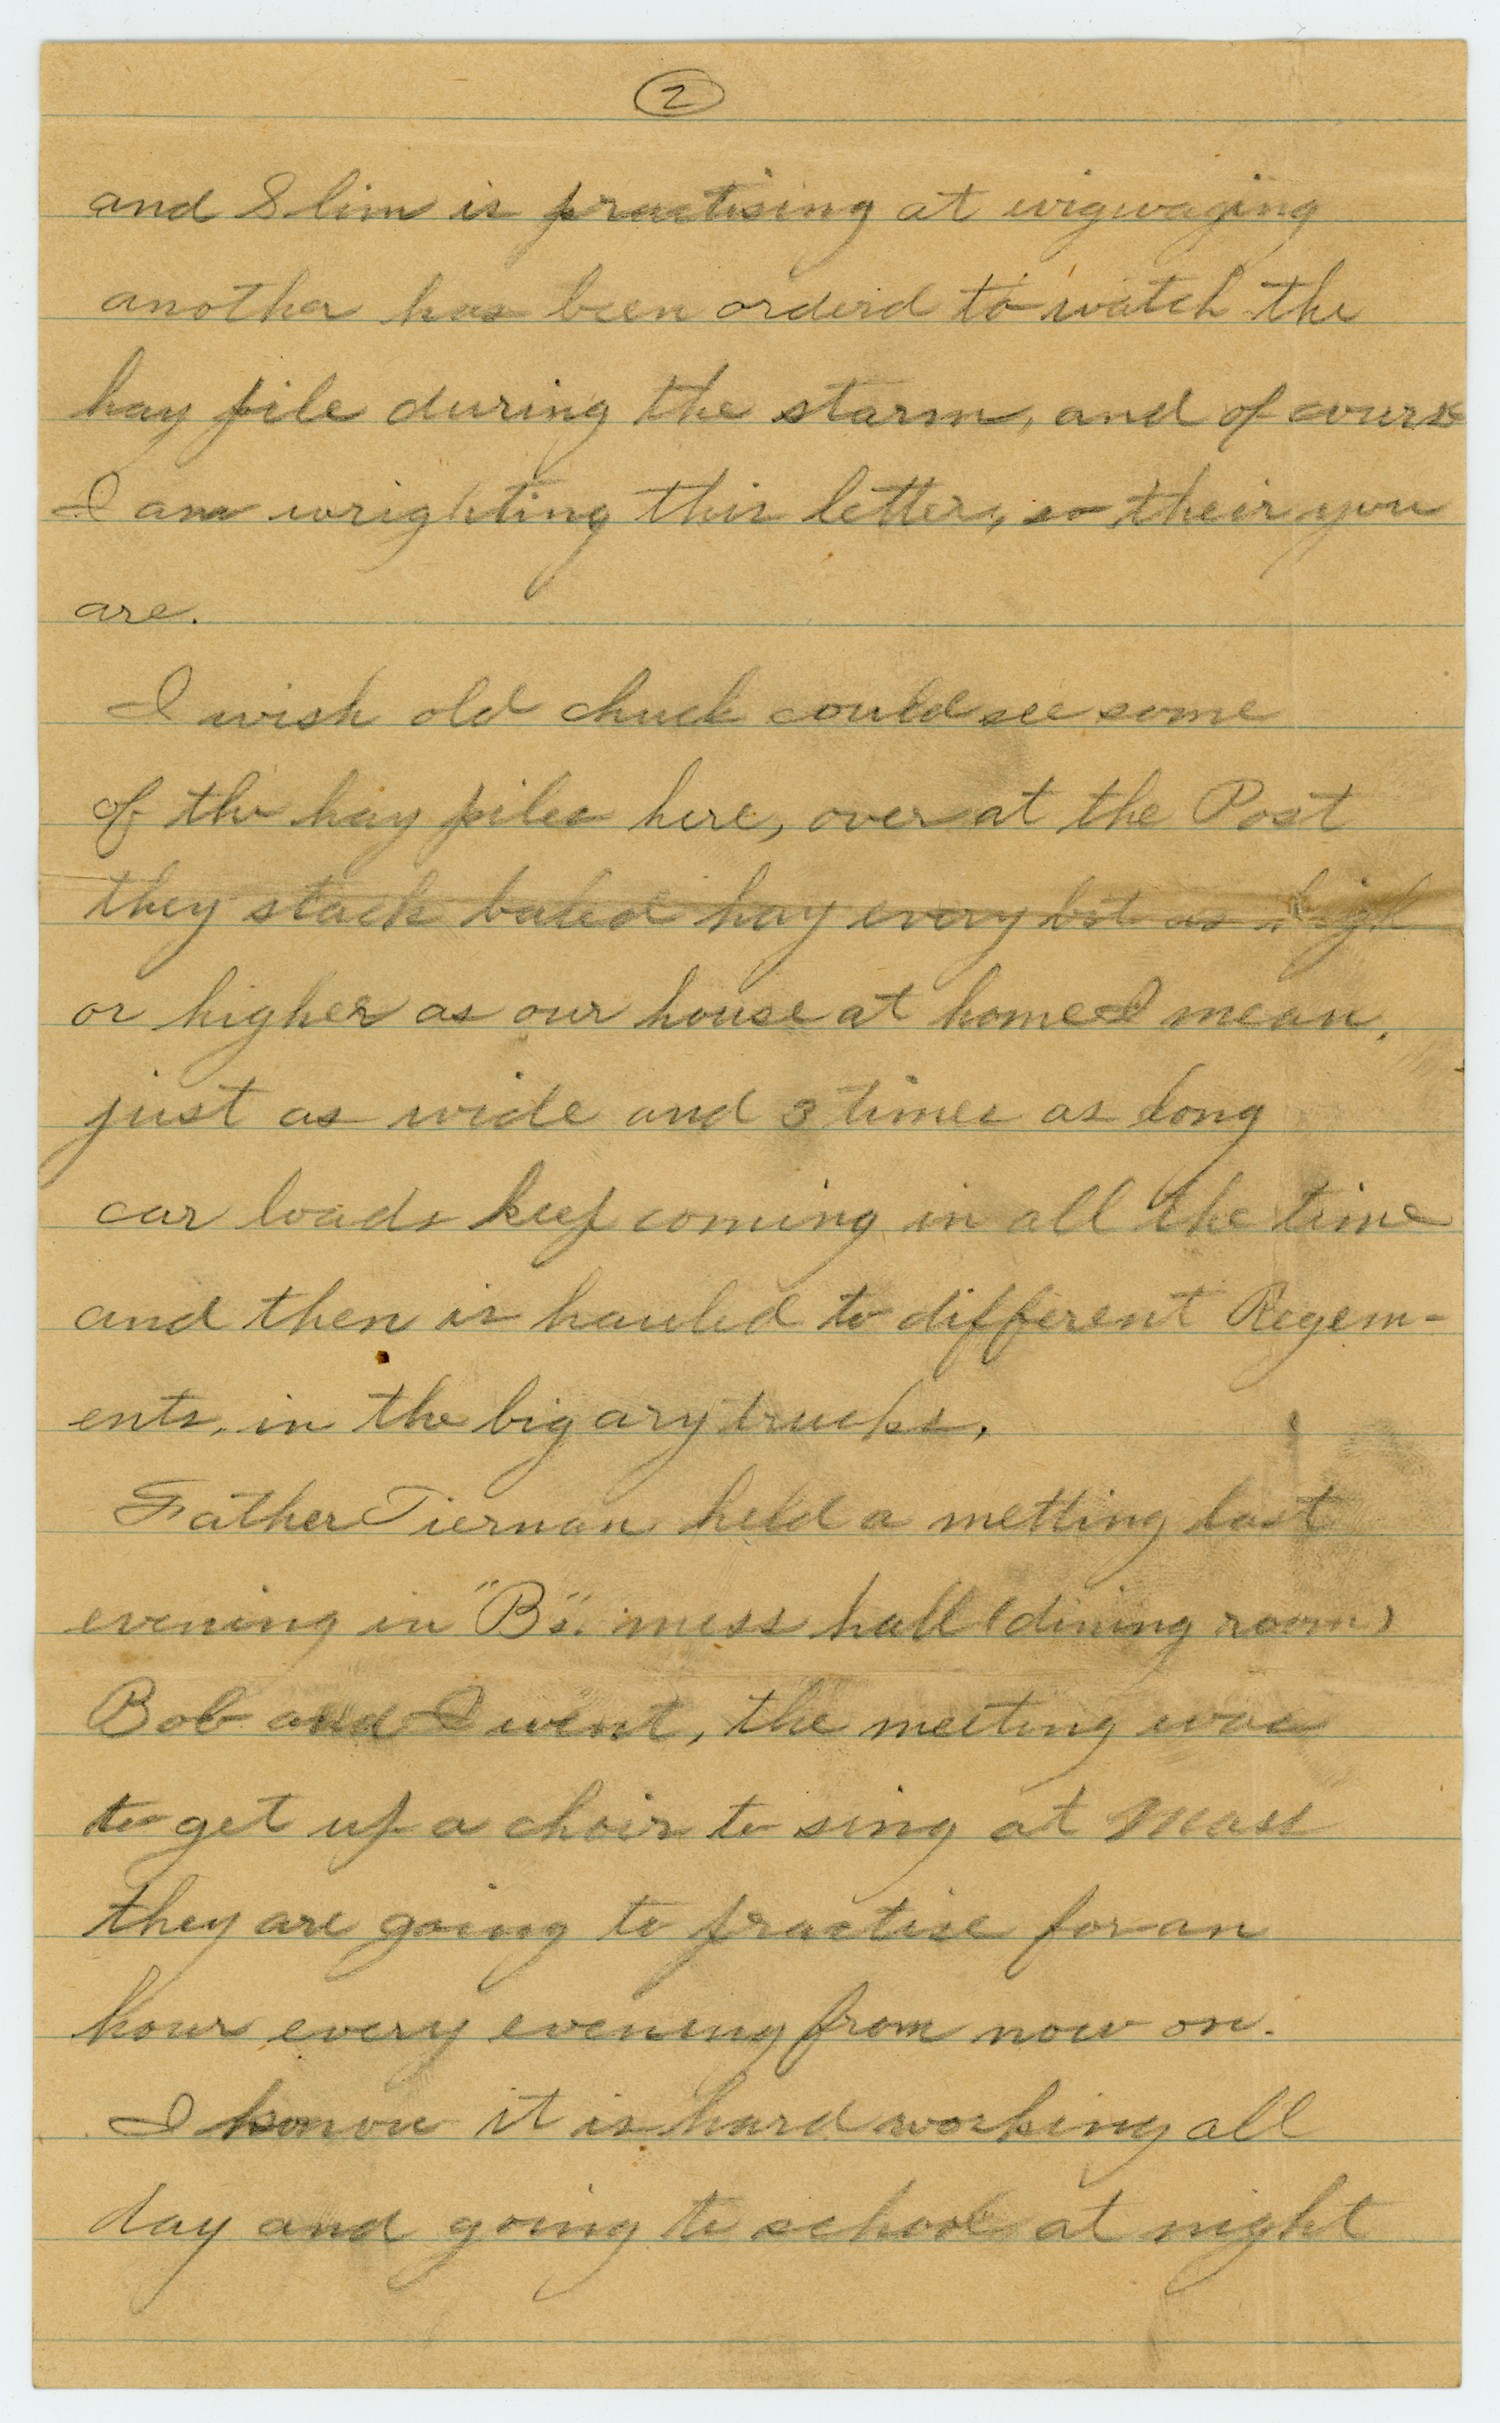 2
and Slim is practising at wigwaging
another has been orderd to watch the
hay pile during the starm, and of course
I am wrighting this letter, so their you
are.
I wish old chuck could see some
of the hay piles here, over at the Post
they stack baled hay every bit as high
or higher as our house at home I mean,
just as wide and 3 times as long
car loads keep coming in all the time
and then is hauled to different Regem-
ents, in the big ary trucks,
Father Tiernan held a metting last
evening in "B's". mess hall (dining room)
Bob and I went, the meeting was
to get up a choir to sing at Mass
they are going to practise for an
hour every evening from now on.
I know it is hard working all
day and going to school at night